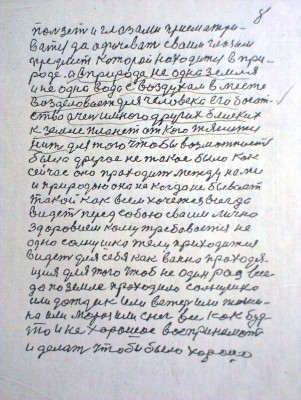 8
ползет и глазами присматри-
вать да адчевать своим глазам
предмет который находится в при-
роде. а в природа не одна земля
и не одна вода с воздухам в месте
для человека его богат-
ство очен много других близких
к земле планет от кого
нит для того чтобы возможность
была другое не такое было как
сейчас оно проходит между нами
и природаю она некогда не бывает
такой как всем хочется всегда
видеть перед собою своим лично
здоровием кому требовается не
одно солнушка тяпли приходится
видеть для себя как важно проходя-
щия для того чтоб не один раз
до по земле проходило солнушко
или дождик или ветер или
на или мороз или снег все как буд-
то и не хорошое воспринимать
и делать чтобы было хорошо